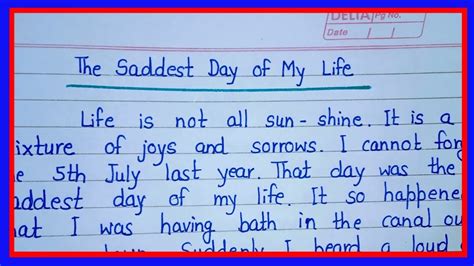 DELTA Pg No.
Date / /
The Saddest Day of My Life
Life is not all sun-shine. It is a
ixture of joys and sorrows. I cannot forg
e 5th July last year. That day was the
addest day of my life. It so happene
at I was having bath in the canal ou
Suddenly I heard a loud